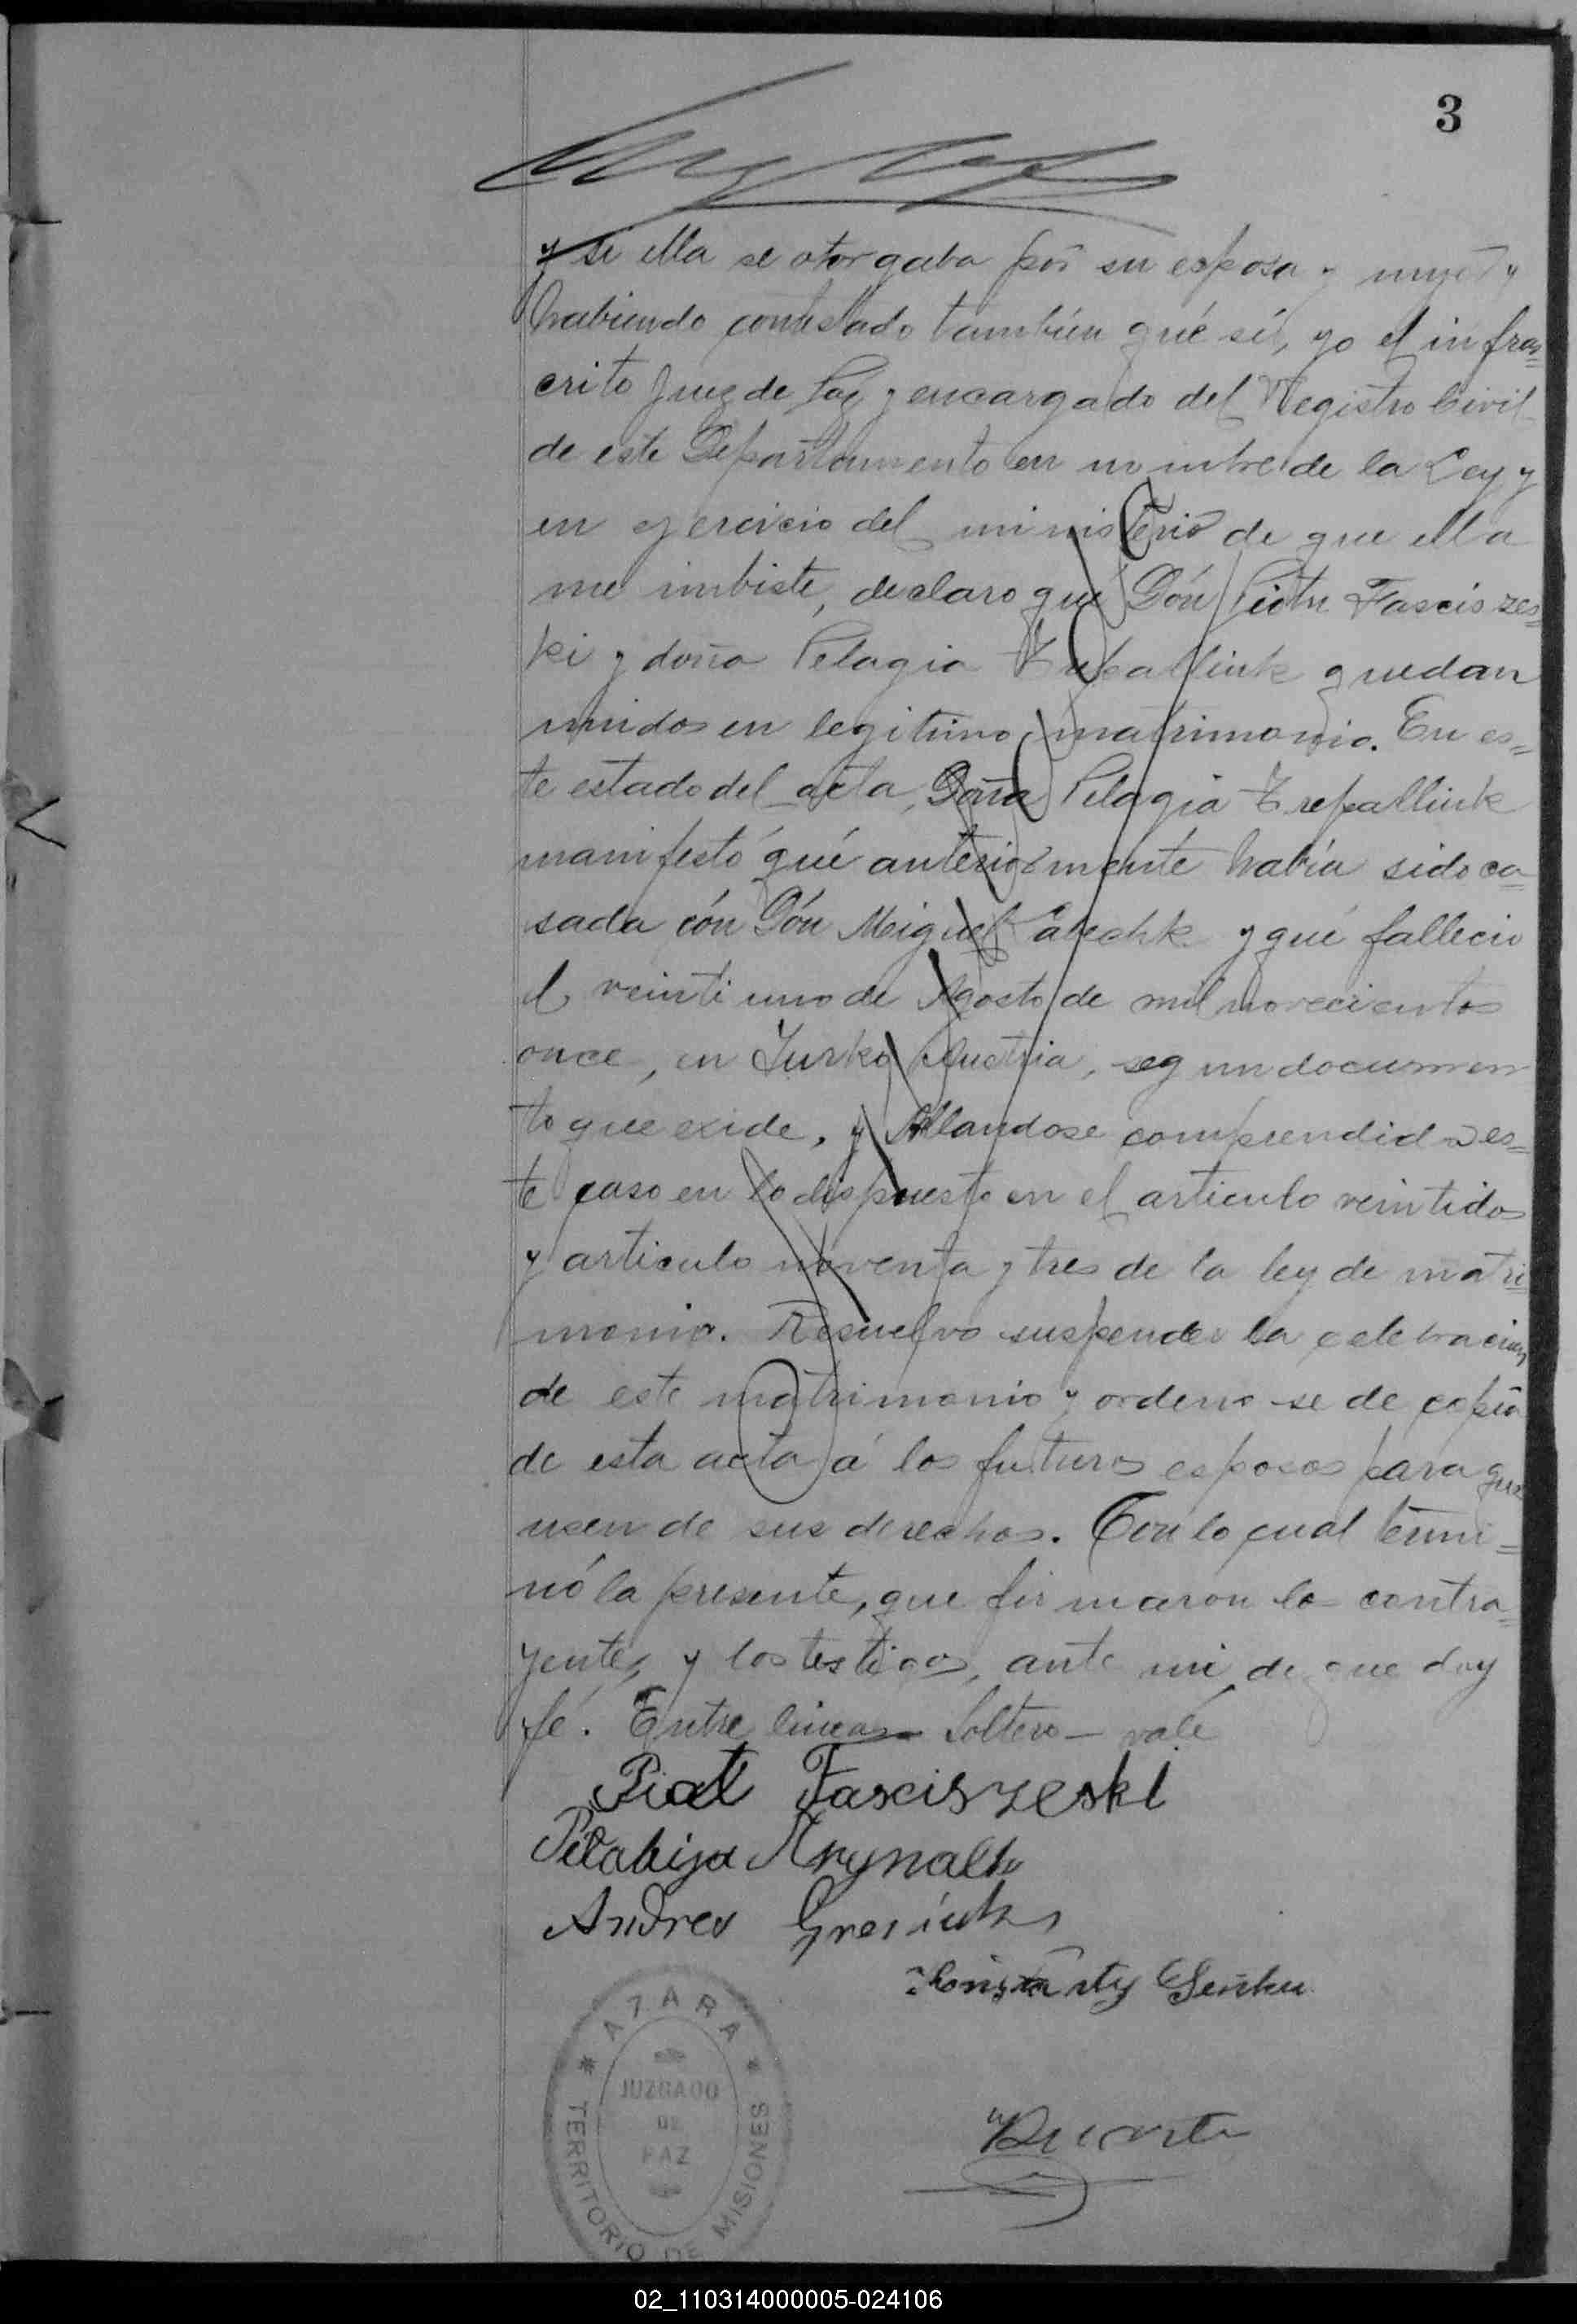 3
y si ella se otorgaba por su esposa y mujer y
habiendo contestado también qué sí, yo el infras=
crito Juez de Paz y encargado del Registro Civil
de este Departamento en nombre de la Ley y
en ejercicio del ministerio de que ella
me imbiste, declaro qué Dón Piotr Fasciszes=
ki y doña Pelagia Trepallink quedan
unidos en legitimo matrimonio. En es=
te estado del acta, Doña Pelagia Trepallink
manifestó qué anteriormente había sido ca=
sada cón Dón Miguel y qué fallecio
el veinti uno de Agosto de mil novecientos
once, en Turka Austria, segun documen
to que exide, y Allandose comprendido es=
te caso en lo dispuesto en el articulo veintidos
y articulo noventa y tres de la ley de matri
monio. Resuelvo suspender la celebracion
de este matrimonio y ordeno se de copia
de esta acta á los futuros esposos para que
usen de sus derechos. Con lo cual termi=
nó la presente, que firmaron los contra=
yentes y los testigos, ante mi de que doy
fé. Entre lineas Soltero — vale
Piot Fasciszeski
Andres
* AZARA *
JUZGADO
DE
PAZ
TERRITORIO DE MISIONES
Duarte
02_110314000005-024106